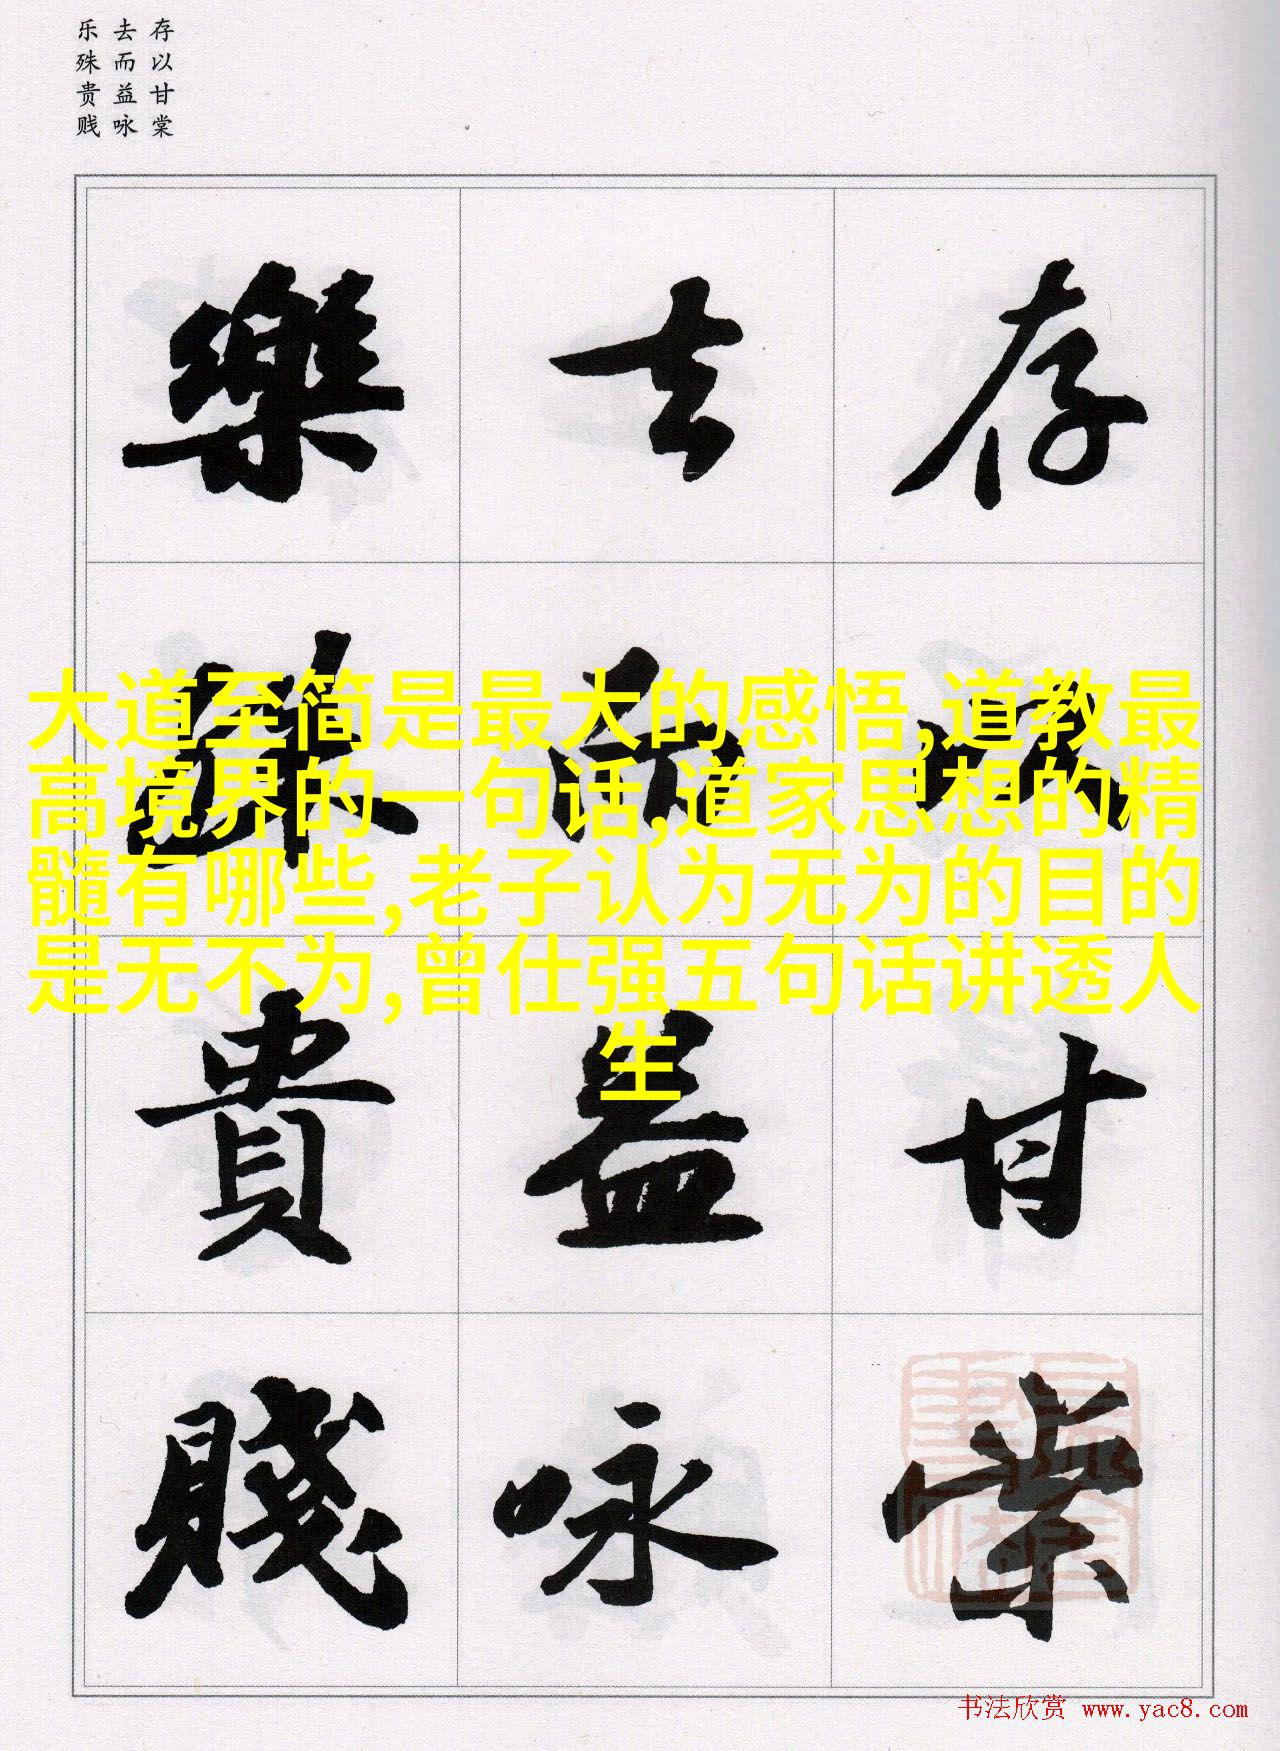 存以甘棠
去而益咏
乐殊贵贱
存以甘棠
去而益咏
樂殊貴賤
大道至简是最大的感悟,道教最
高境界的一句话,道家思想的精
髓有哪些,老子认为无为的目的
是无不为,曾仕强五句话讲透人
生
书法欣赏 www.yac8.com